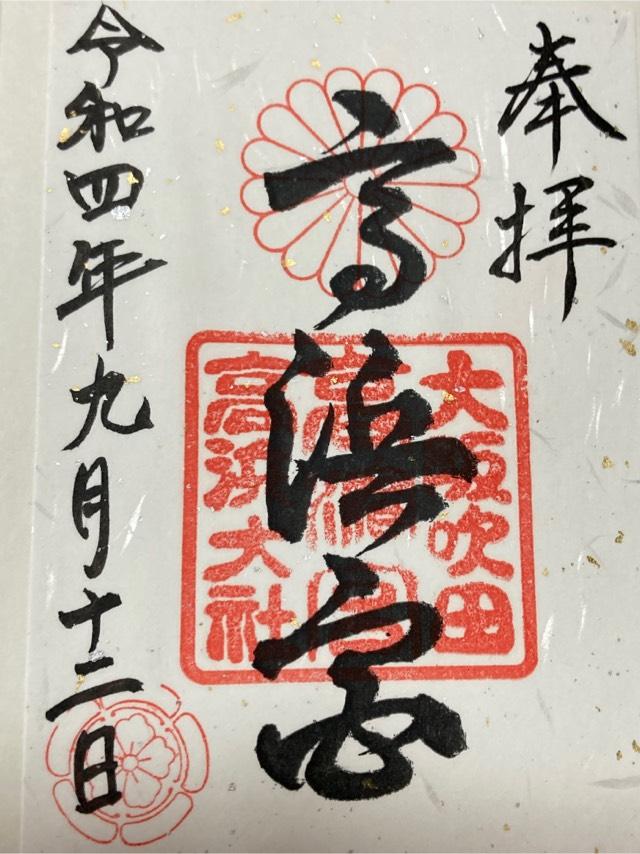 奉拝
高浜宮
大阪吹田
高浜大社
令和四年九月十二日